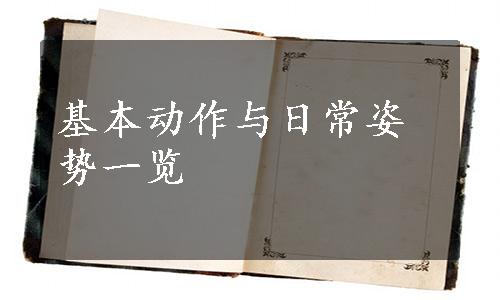 基本动作与日常姿
势一览